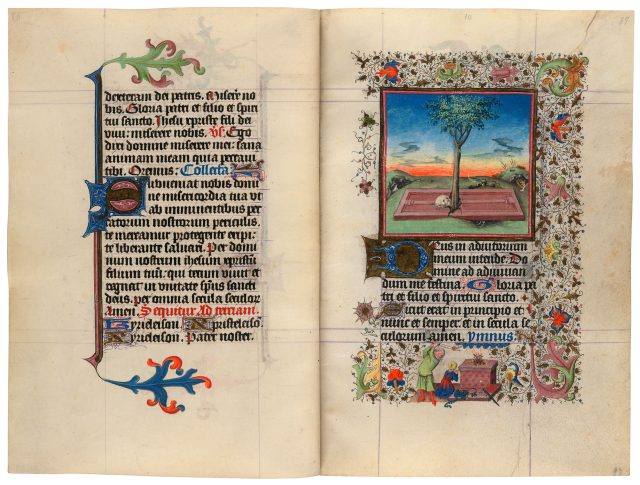 dexteram dei patris. Misere no
bis. Gloria patri et filio et spiri
tui sancto. Jhesu xpriste fili dei
viui: miserere nobis. Vs: Ego
dixi domine miserere mei: sana
animam meam quia peccaui
tibi. Oremus: Collecta
Subueniat nobis domi
ne misericordia tua vt
ab imminentibus pec
catorum nostrorum periculis.
te mereamur protegente eripi:
te liberante saluari. Per domi
num nostrum ihesum xpristum
filium tuum: qui tecum viuit et
regnat in vnitate spiritus sancti
deus. per omnia secula seculorum
Amen. Sequitur Ad terciam.
Kyrieleison. Xpisteleiso
Kyrieleison. Pater noster.
Deus in adiutorium
meum intende. Do
mine ad adiuuan
dum me festina. Gloria pa
tri et filio et spiritui sancto.
Sicut erat in principio et
nunc et semper. et in secula se
culorum amen. Ymnus: